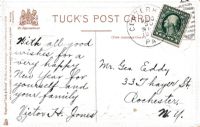 TUCK'S POST CARD
With all good
wishes for a
very happy
New Year for
yourself and
your family
Victor H. Jones
Mr. Geo. Eddy
33 Thayer St
Rochester,
N.Y.